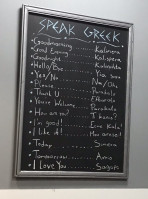 SPEAK GREEK
Goodmorning ..... Kalimera
Good Evening ..... Kalispera
Goodnight ..... Kalinihta
Hello/Bye ..... Yia sou
Yes/No ..... Ne/Ohi
Please ..... Parakalo
Thank U ..... Efharisto
You're Welcome .. Parakalo
How are you? ..... Ti kanis?
I'm good! ..... Eime Kala!
I like it! ..... Mou aresei!
Today ..... Simera
Tomorrow ..... Avrio
I Love You ..... S'agapo